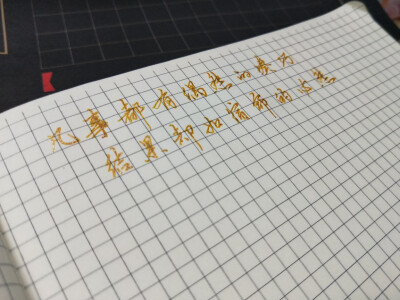 凡事都有偶然的凑巧
结果却如宿命的必然